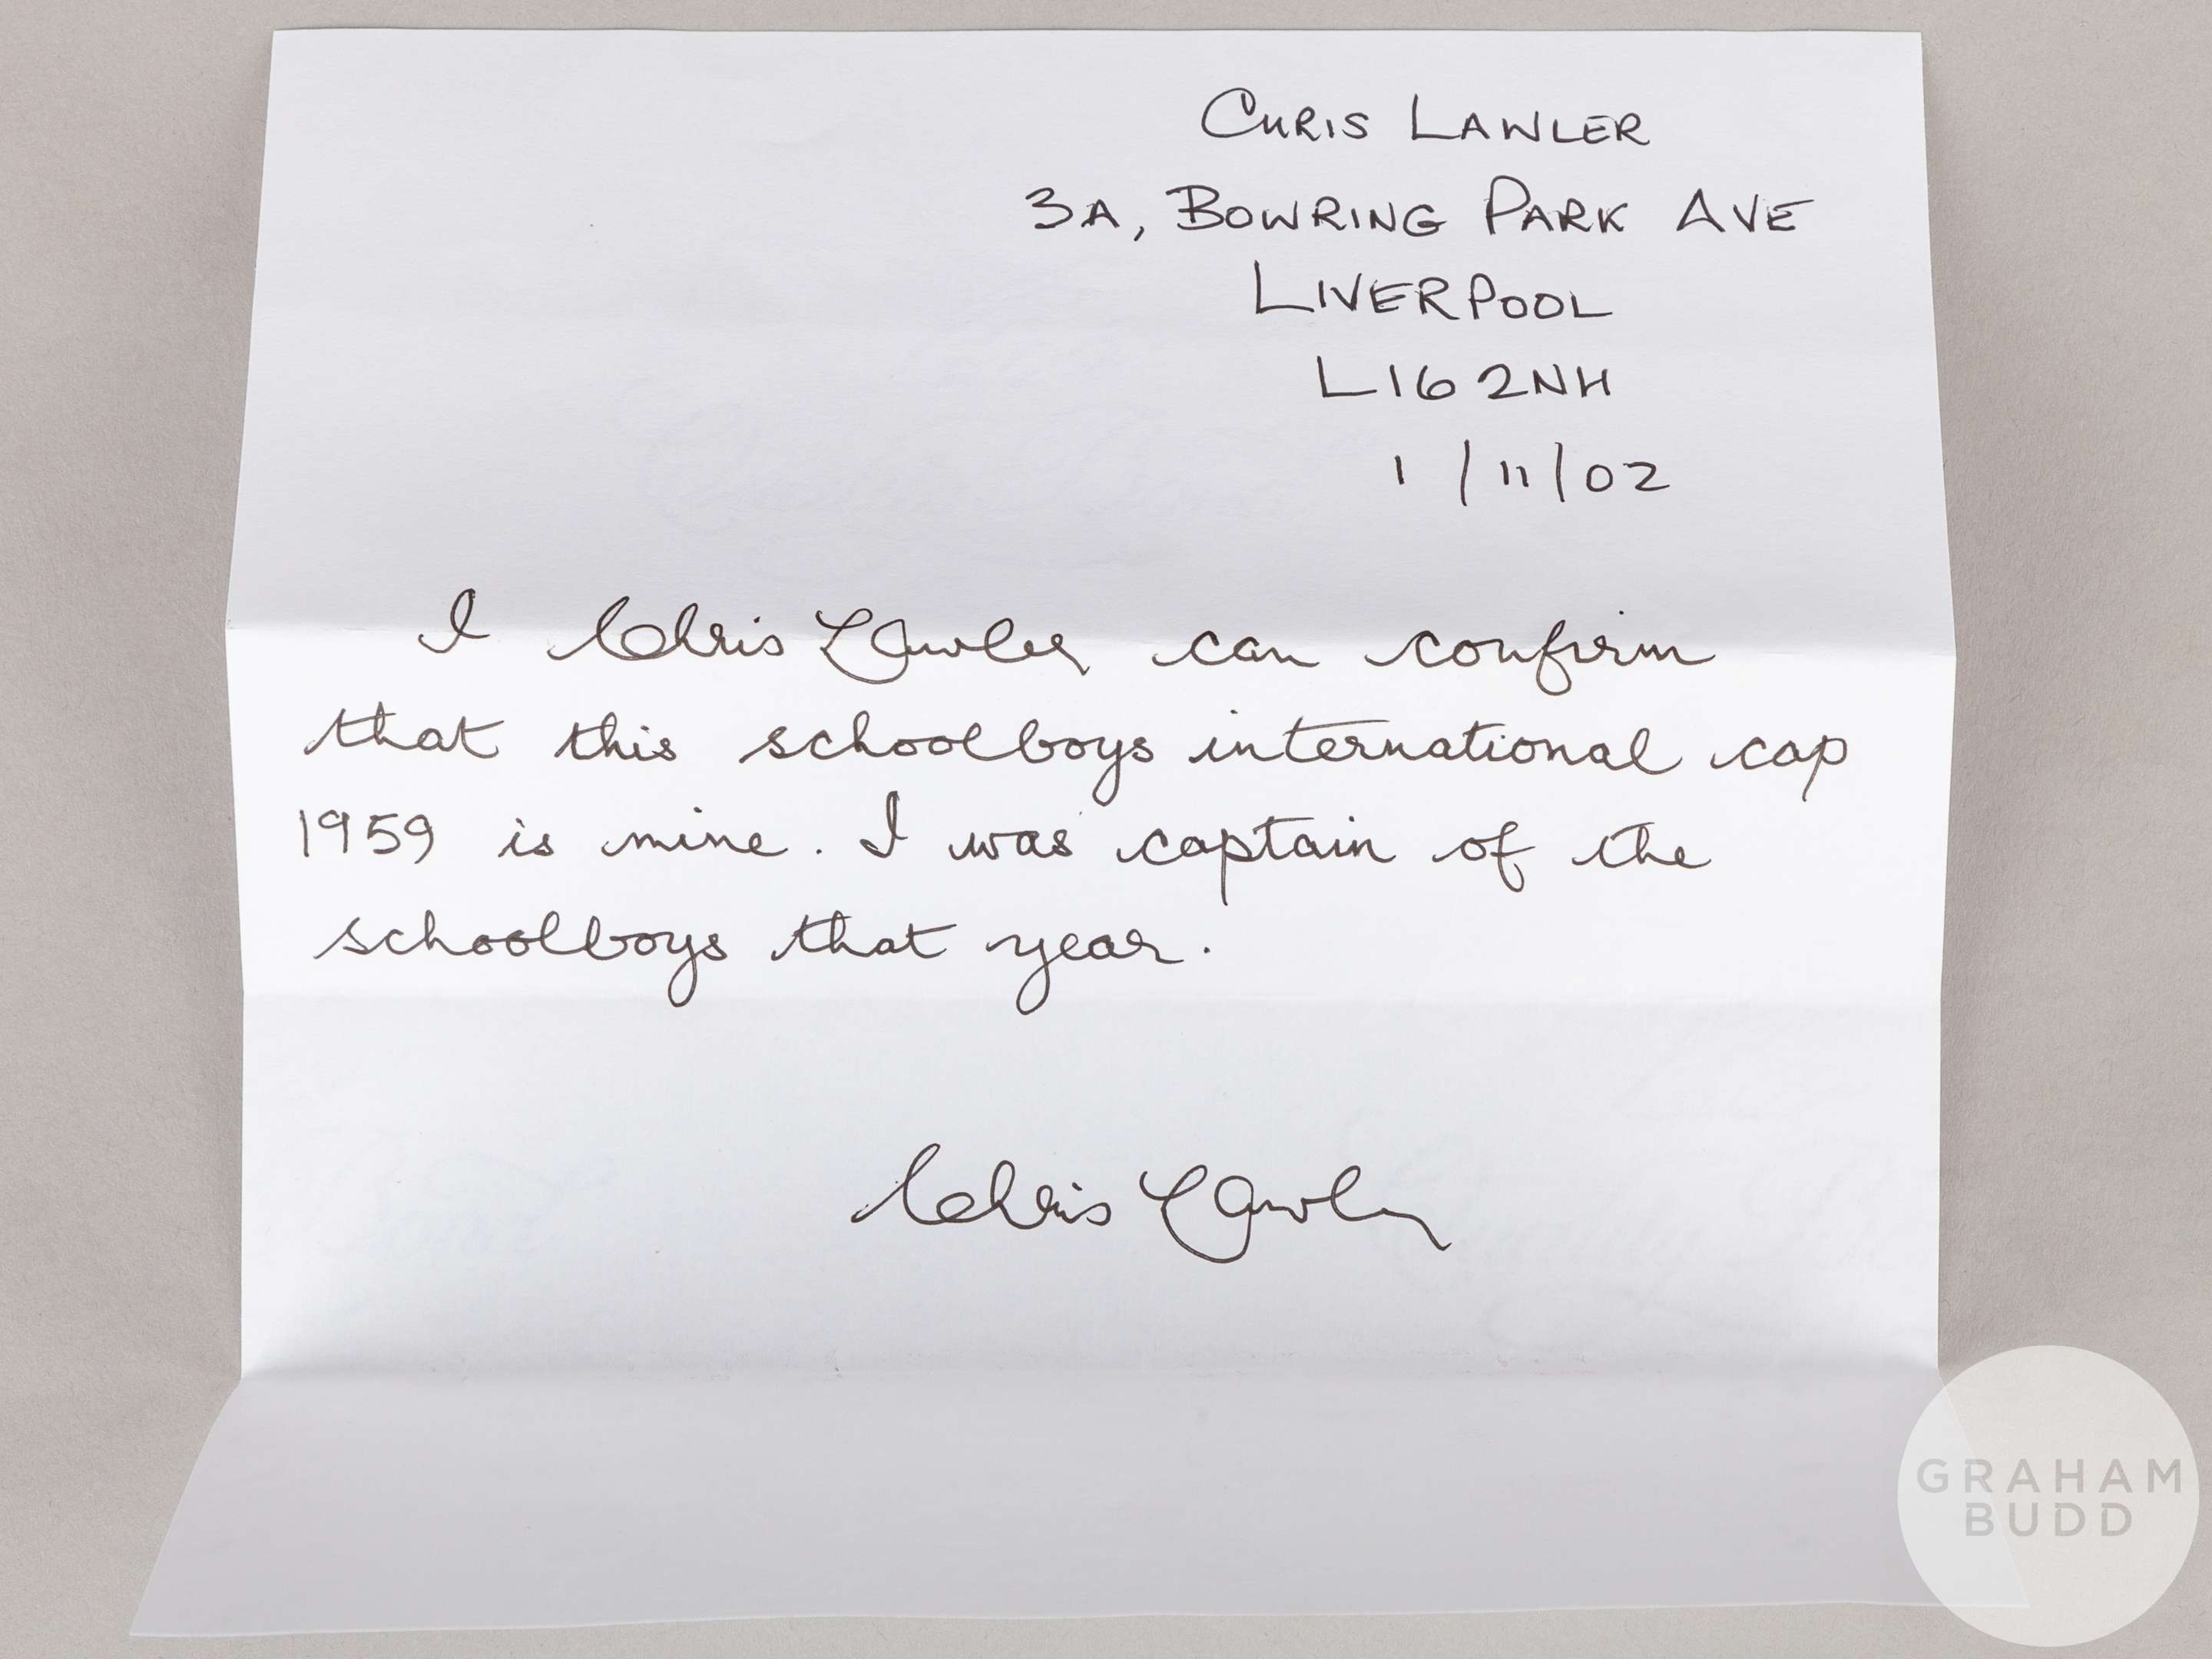 CHRIS LAWLER
3A, BOWRING PARK AVE
LIVERPOOL
L16 2NH
1/11/02
I Chris Lawler can confirm
that this schoolboys international cap
1959 is mine. I was captain of the
schoolboys that year.
Chris Lawler
GRAHAM
BUDD